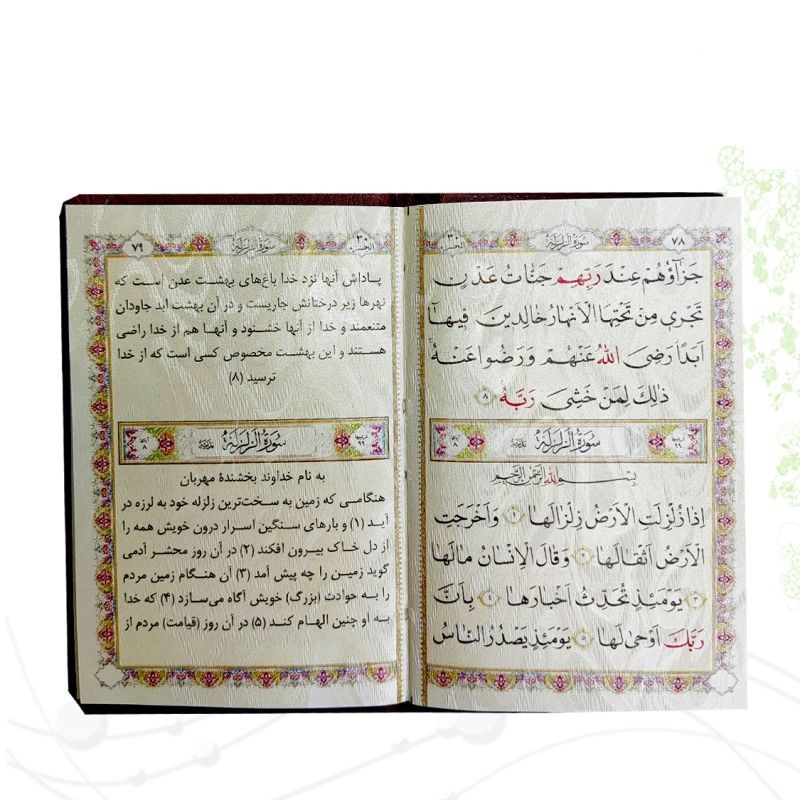 ٧٨
سورة الزلزلة
جَزَآؤُهُمْ عِنْدَ رَبِّهِمْ جَنَّاتُ عَدْنٍ
تَجْرِی مِنْ تَحْتِهَا الْاَنْهَارُ خَالِدِینَ فِیهَآ
اَبَدًا رَضِیَ اللهُ عَنْهُمْ وَرَضُوا عَنْهُ
ذٰلِكَ لِمَنْ خَشِیَ رَبَّهُ ٨
سُورَةُ الزَّلْزَلَةِ مَدَنِيَّة
بِسْمِ اللهِ الرَّحْمٰنِ الرَّحِيمِ
اِذَا زُلْزِلَتِ الْاَرْضُ زِلْزَالَهَا ١ وَاَخْرَجَتِ
الْاَرْضُ اَثْقَالَهَا ٢ وَقَالَ الْاِنْسَانُ مَالَهَا
٣ یَوْمَئِذٍ تُحَدِّثُ اَخْبَارَهَا ٤ بِاَنَّ
رَبَّكَ اَوْحٰی لَهَا ٥ یَوْمَئِذٍ یَصْدُرُ النَّاسُ
٧٩
سورة الزلزلة
پاداش آنها نزد خدا باغ‌های بهشت عدن است که
نهرها زیر درختانش جاریست و در آن بهشت ابد جاودان
متنعمند و خدا از آنها خشنود و آنها هم از خدا راضی
هستند و این بهشت مخصوص کسی است که از خدا
ترسید (۸)
سُورَةُ الزَّلْزَلَةِ مَدَنِيَّة
به نام خداوند بخشندهٔ مهربان
هنگامی که زمین به سخت‌ترین زلزله خود به لرزه در
آید (۱) و بارهای سنگین اسرار درون خویش همه را
از دل خاک بیرون افکند (۲) در آن روز محشر آدمی
گوید زمین را چه پیش آمد (۳) آن هنگام زمین مردم
را به حوادث (بزرگ) خویش آگاه می‌سازد (۴) که خدا
به او چنین الهام کند (۵) در آن روز (قیامت) مردم از